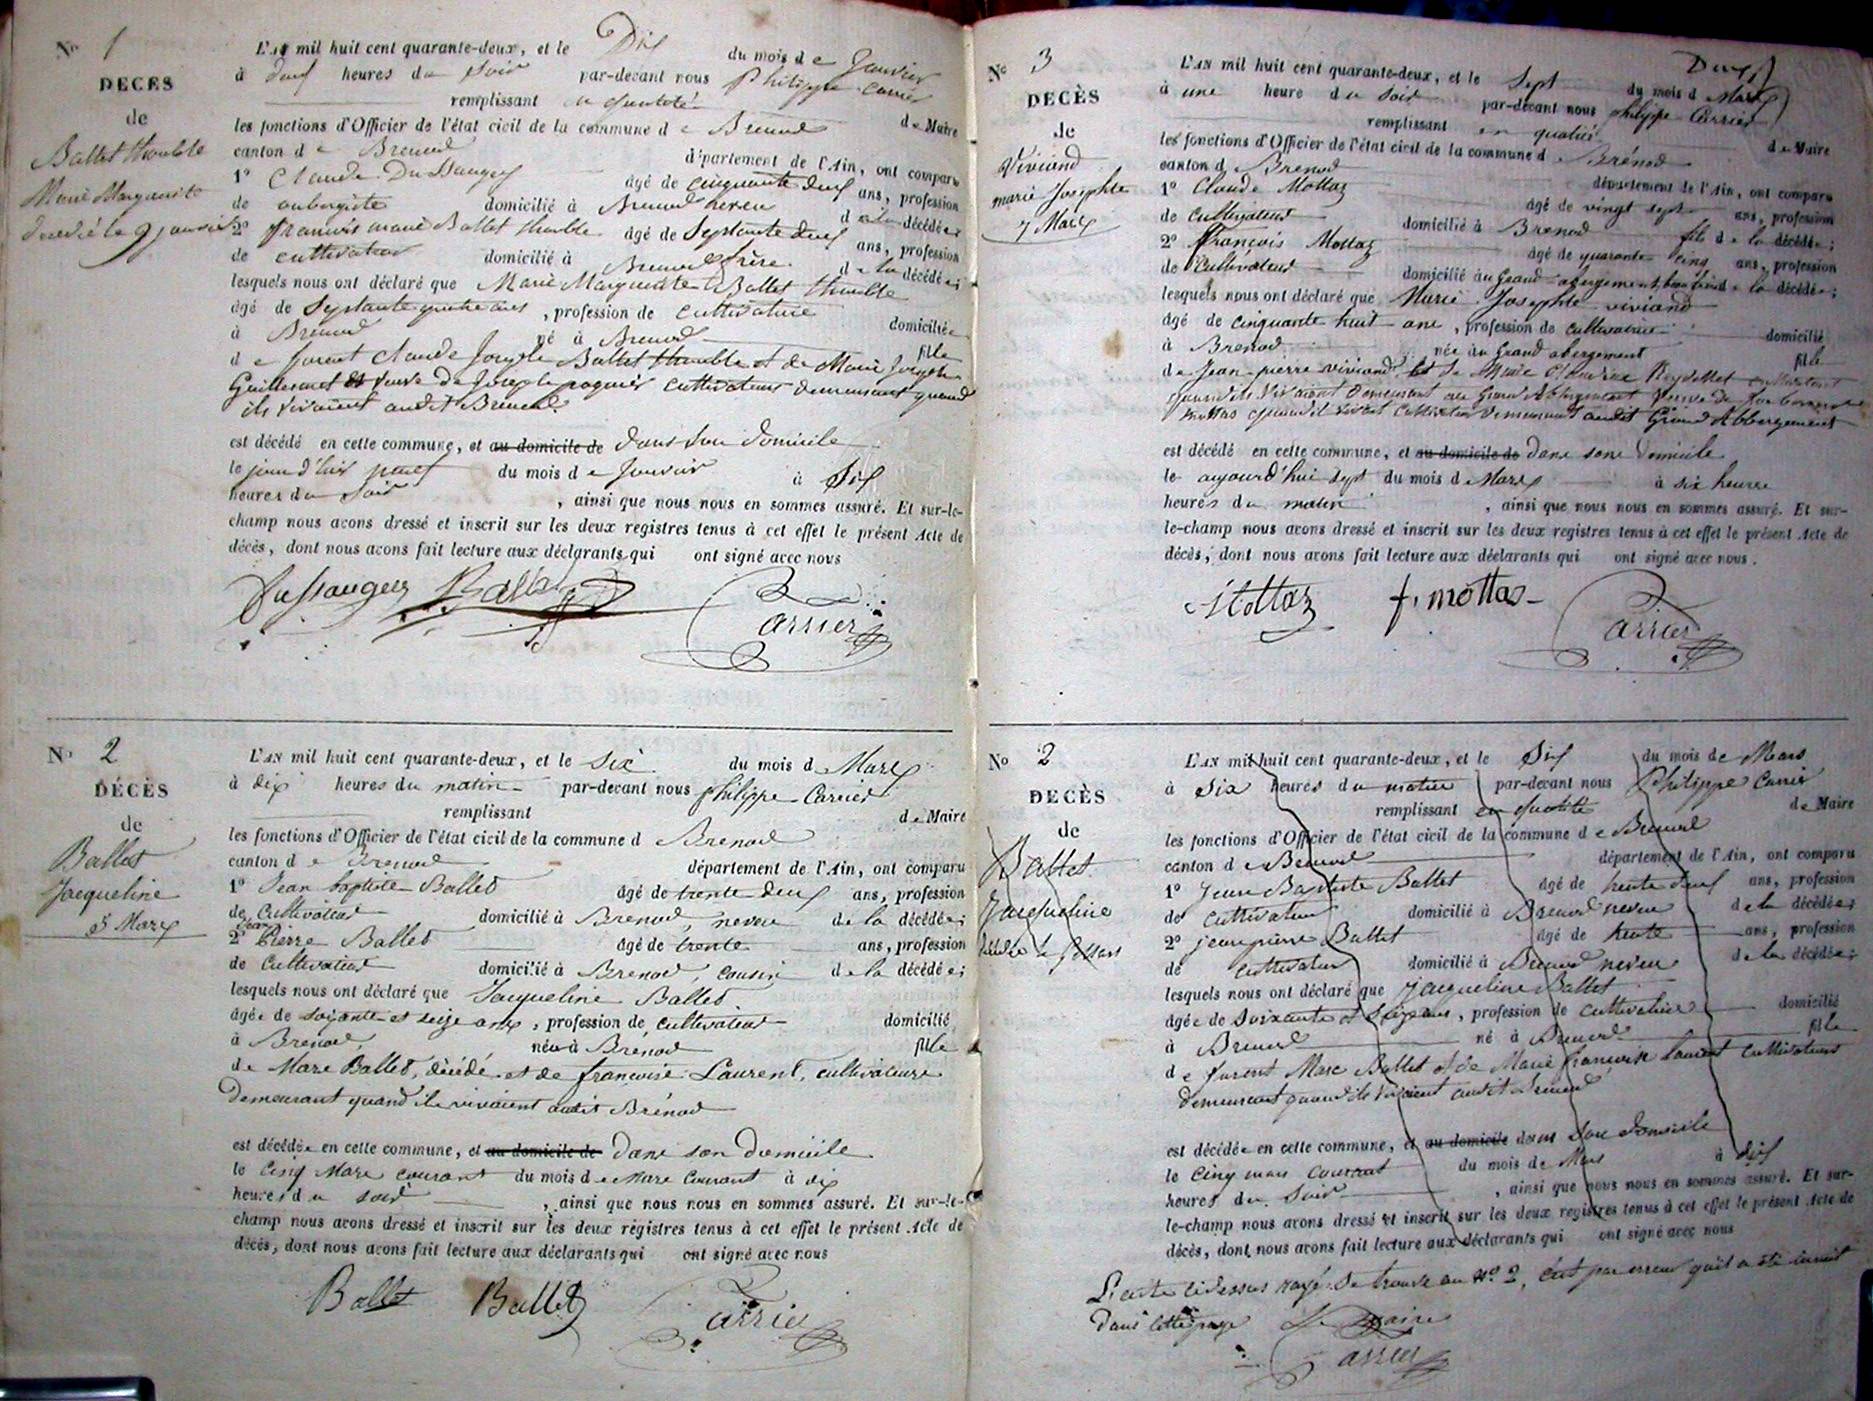 N° 1
DECES
de
Ballet thouble
Marie Marguerite
décédé le 9 janvier
L'AN mil huit cent quarante-deux, et le Dix du mois de Janvier
à deux heures du Soir par-devant nous Philippe Carrier
remplissant en qualité de Maire
les fonctions d'Officier de l'état civil de la commune de Brenod
canton de Brenod département de l'Ain, ont comparu
1° Claude âgé de cinquante deux ans, profession
de aubergiste domicilié à Brenod neveu de la décédée
2° françois marie Ballet thouble âgé de Septante deux ans, profession
de cultivateur domicilié à Brenod frère de la décédée;
lesquels nous ont déclaré que Marie Marguerite Ballet thouble
âgé de Septante quatre ans, profession de cultivatrice domiciliée
à Brenod né à Brenod fille
de furent Claude Joseph Ballet thouble et de Marie Joseph
Guillermet et veuve de Joseph cultivateurs demeurant quand
ils vivaient audit Brenod.
est décédé en cette commune, et au domicile de dans son domicile
le jour d'hier neuf du mois de Janvier à Dix
heures du Soir, ainsi que nous nous en sommes assuré. Et sur-le-
champ nous avons dressé et inscrit sur les deux registres tenus à cet effet le présent Acte de
décès, dont nous avons fait lecture aux déclarants qui ont signé avec nous
Ballet Carrier
N° 2
DÉCÈS
de
Ballet
Jacqueline
5 Mars
L'AN mil huit cent quarante-deux, et le Six du mois d Mars
à dix heures du matin par-devant nous philippe Carrier
remplissant de Maire
les fonctions d'Officier de l'état civil de la commune d Brenod
canton de Brenod département de l'Ain, ont comparu
1° Jean baptiste Ballet âgé de trente deux ans, profession
de Cultivateur domicilié à Brenod, neveu de la décédée;
2° Jean Pierre Ballet âgé de trente ans, profession
de Cultivateur domicilié à Brenod, cousin de la décédée;
lesquels nous ont déclaré que Jacqueline Ballet
âgée de soixante et seize ans, profession de cultivateur domicilié
à Brenod née à Brénod fille
de Marc Ballet, décédé et de françoise Laurent, cultivateurs
Demeurant quand ils vivaient audit Brénod
est décédée en cette commune, et au domicile de Dans son domicile
le Cinq Mars courant du mois de Mars Courant à dix
heures du soir, ainsi que nous nous en sommes assuré. Et sur-le-
champ nous avons dressé et inscrit sur les deux registres tenus à cet effet le présent Acte de
décès, dont nous avons fait lecture aux déclarants qui ont signé avec nous
Ballet Ballet Carrier
Deux
N° 3
DECÈS
de
Viviand
marie Josephte
7 Mars
L'AN mil huit cent quarante-deux, et le Sept du mois d Mars
à une heure du soir par-devant nous philippe Carrier
remplissant en qualité de Maire
les fonctions d'Officier de l'état civil de la commune d Brénod
canton d Brenod département de l'Ain, ont comparu
1° Claude Mottaz âgé de vingt sept ans, profession
de Cultivateur domicilié à Brenod fils de la décédée;
2° François Mottaz âgé de quarante cinq ans, profession
de Cultivateur domicilié au Grand abergement de la décédée;
lesquels nous ont déclaré que Marie Josephte viviand
âgé de cinquante huit ans, profession de cultivatrice domicilié
à Brenod née au Grand abergement fille
de Jean-pierre viviand et de Marie Reydellet
quand ils vivaient demeurant au Grand Abergement veuve de
Mottas quand il vivait Cultivateur Demeurant audit Grand Abbergement
est décédé en cette commune, et au domicile de Dans sone Domicile
le aujourd'hui Sept du mois d Mars à six heures
heures du matin, ainsi que nous nous en sommes assuré. Et sur-
le-champ nous avons dressé et inscrit sur les deux registres tenus à cet effet le présent Acte de
décès, dont nous avons fait lecture aux déclarants qui ont signé avec nous.
Mottaz f. mottas Carrier
N° 2
DECÈS
de
Ballet
Jacqueline
décédée le 5 Mars
L'AN mil huit cent quarante-deux, et le Six du mois de Mars
à Six heures du matin par-devant nous Philippe Carrier
remplissant en qualité de Maire
les fonctions d'Officier de l'état civil de la commune de Brenod
canton de Brenod département de l'Ain, ont comparu
1° Jean Baptiste Ballet âgé de trente deux ans, profession
de cultivateur domicilié à Brenod neveu de la décédée;
2° jean pierre Ballet âgé de trente ans, profession
de cultivateur domicilié à Brenod neveu de la décédée;
lesquels nous ont déclaré que Jacqueline Ballet
âgée de Soixante et Seize ans, profession de cultivatrice domicilié
à Brenod né à Brenod fille
de furent Marc Ballet et de Marie françoise Laurent cultivateurs
demeurant quand ils vivaient audit Brenod
est décédée en cette commune, et au domicile dans Son domicile
le Cinq mars courant du mois de Mars à dix
heures du Soir, ainsi que nous nous en sommes assuré. Et sur-
le-champ nous avons dressé et inscrit sur les deux registres tenus à cet effet le présent Acte de
décès, dont nous avons fait lecture aux déclarants qui ont signé avec nous
L'acte cidessus rayé se trouve au N° 2, c'est par erreur qu'il a été inscrit
Dans cette page Le Maire
Carrier